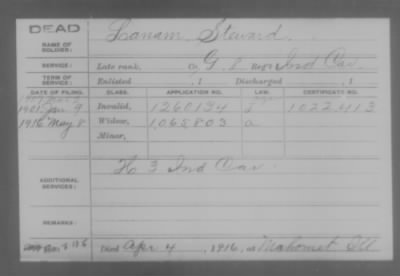 DEAD
NAME OF SOLDIER: Lanam Steward
SERVICE: Late rank, Co. G. 8 Reg't Ind Cav
TERM OF SERVICE: Enlisted , 1 Discharged , 1
DATE OF FILING. CLASS. APPLICATION NO. LAW. CERTIFICATE NO.
1901 Jan 9 Invalid, 1260134 1022413
1916 May 8 Widow, 1065803 a
Minor,
ADDITIONAL SERVICES: H 3 Ind Cav
REMARKS:
Died Apr 4 , 1916, at Mahomet Ill